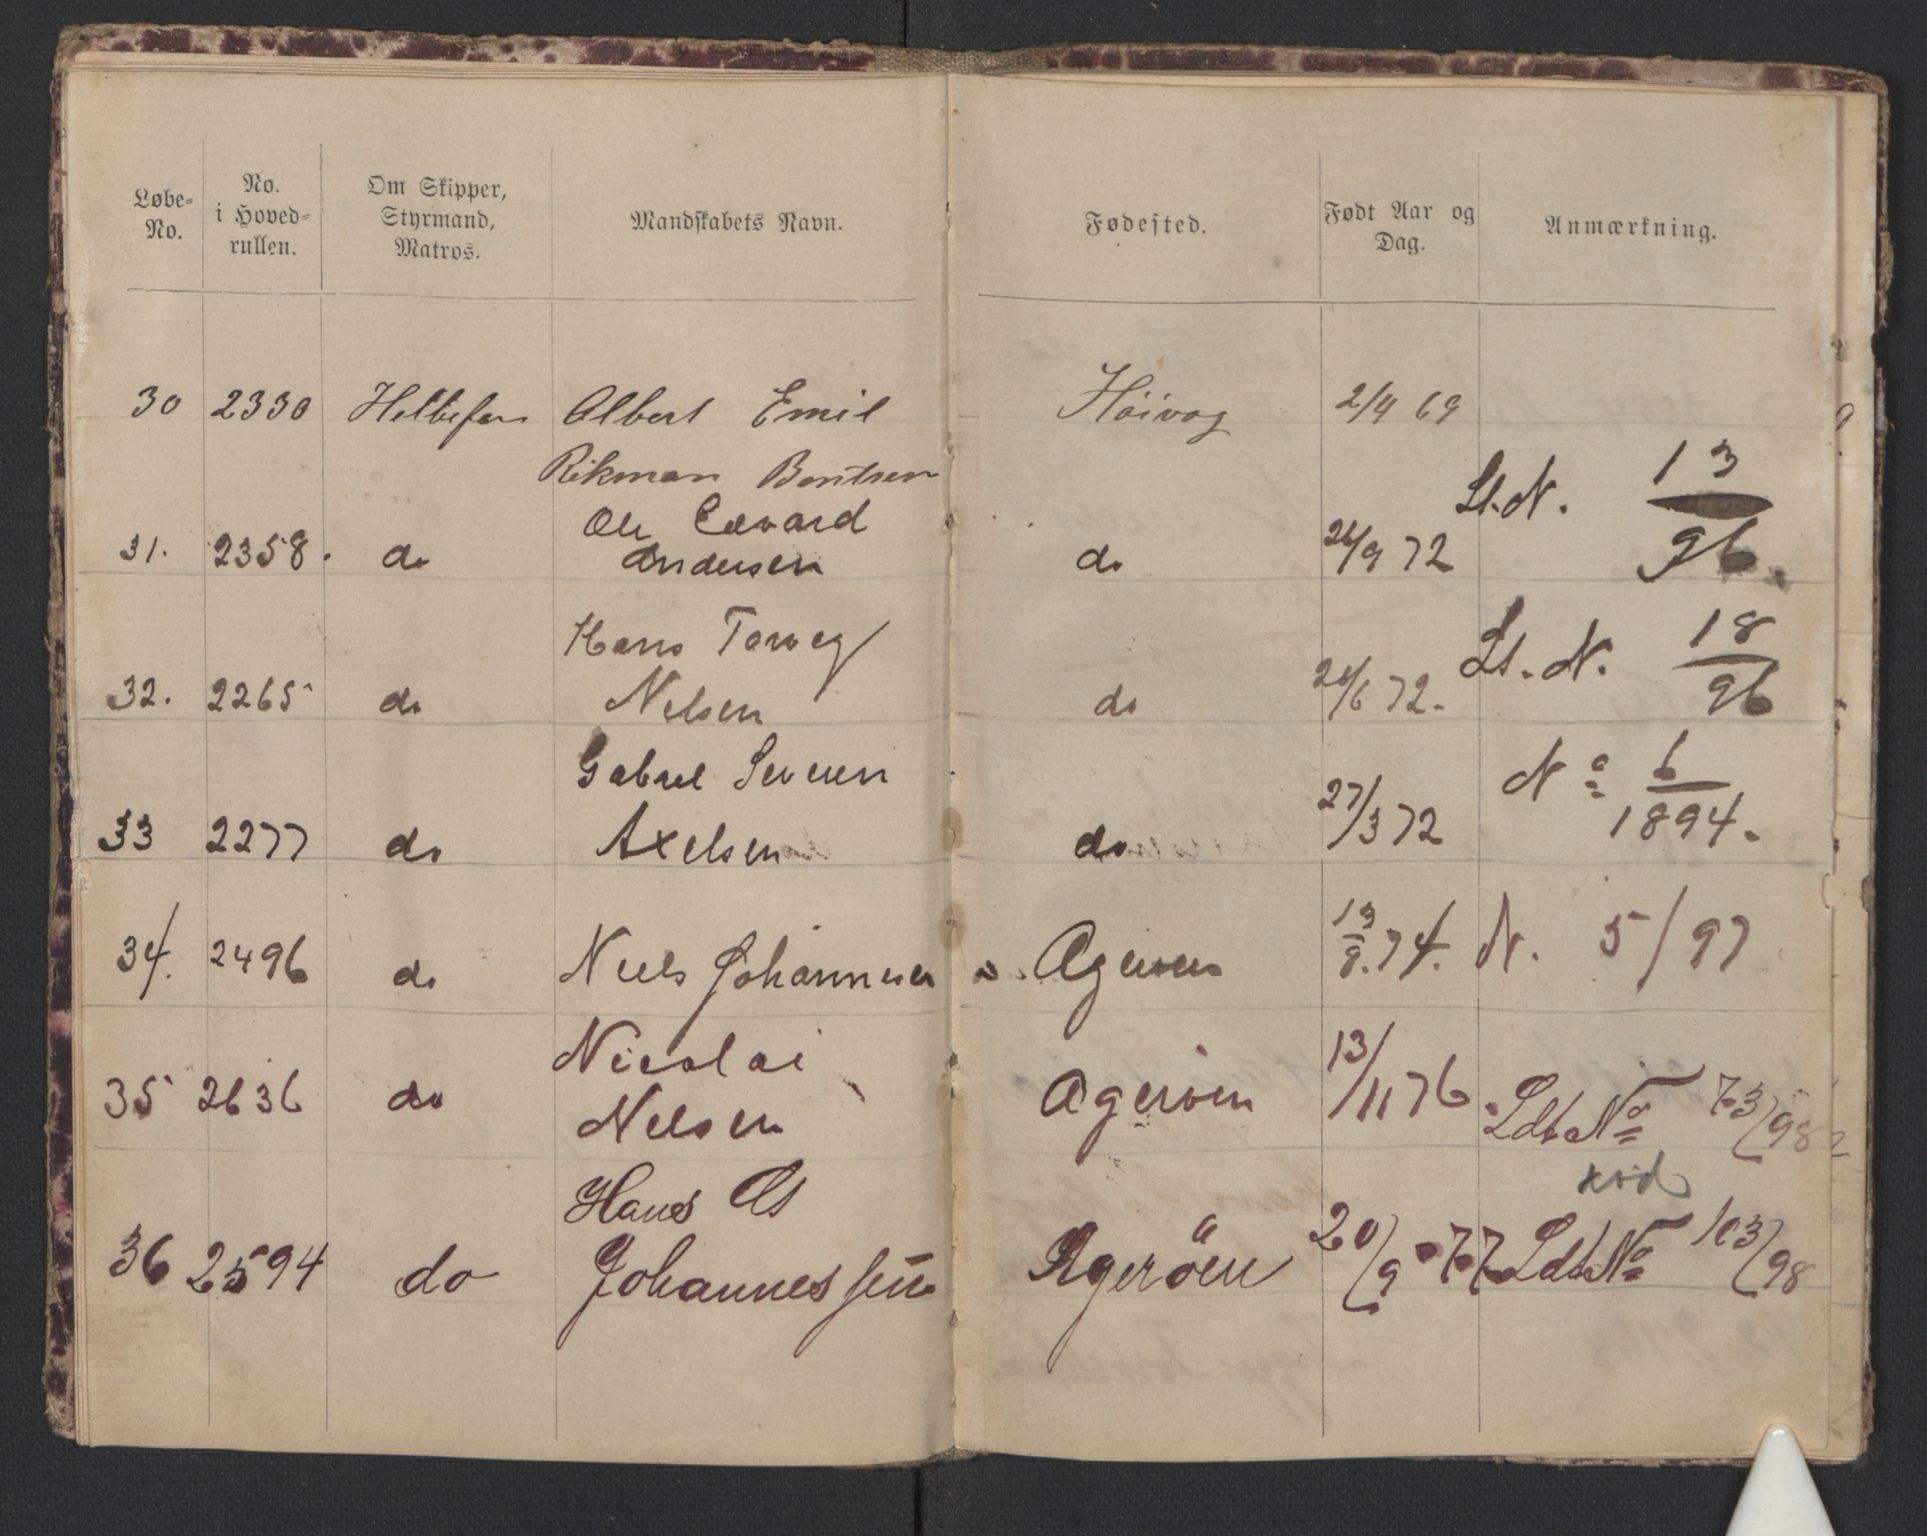 Løbe- No.
No. i Hoved- rullen.
Om Skipper, Styrmand, Matros.
Mandskabets Navn.
Fødested.
Født Aar og Dag.
Anmærkning.
30 2330 Albert Emil Høivog 2/4 69
Rikman Bentsen
Ole Edvard
31. 2358. do Andersen do 26/9 72 Lt. N. 13/96.
Hans
32. 2265 do Nilsen do 72. Lt. N. 18/96
Gabriel Severin
33 2277 do Axelsen do 27/3 72 No 6/1894.
34. 2496 do Niels Johannesen Ageröen 13/9. 74. N. 5/97
Nicolai
35 2636 do Nelsen Ageröen 13/11 76. Ldt No 73/98
död
Hans
36 2594 do Johannessen Ageröen 20/9 77 Ldt No 103/98